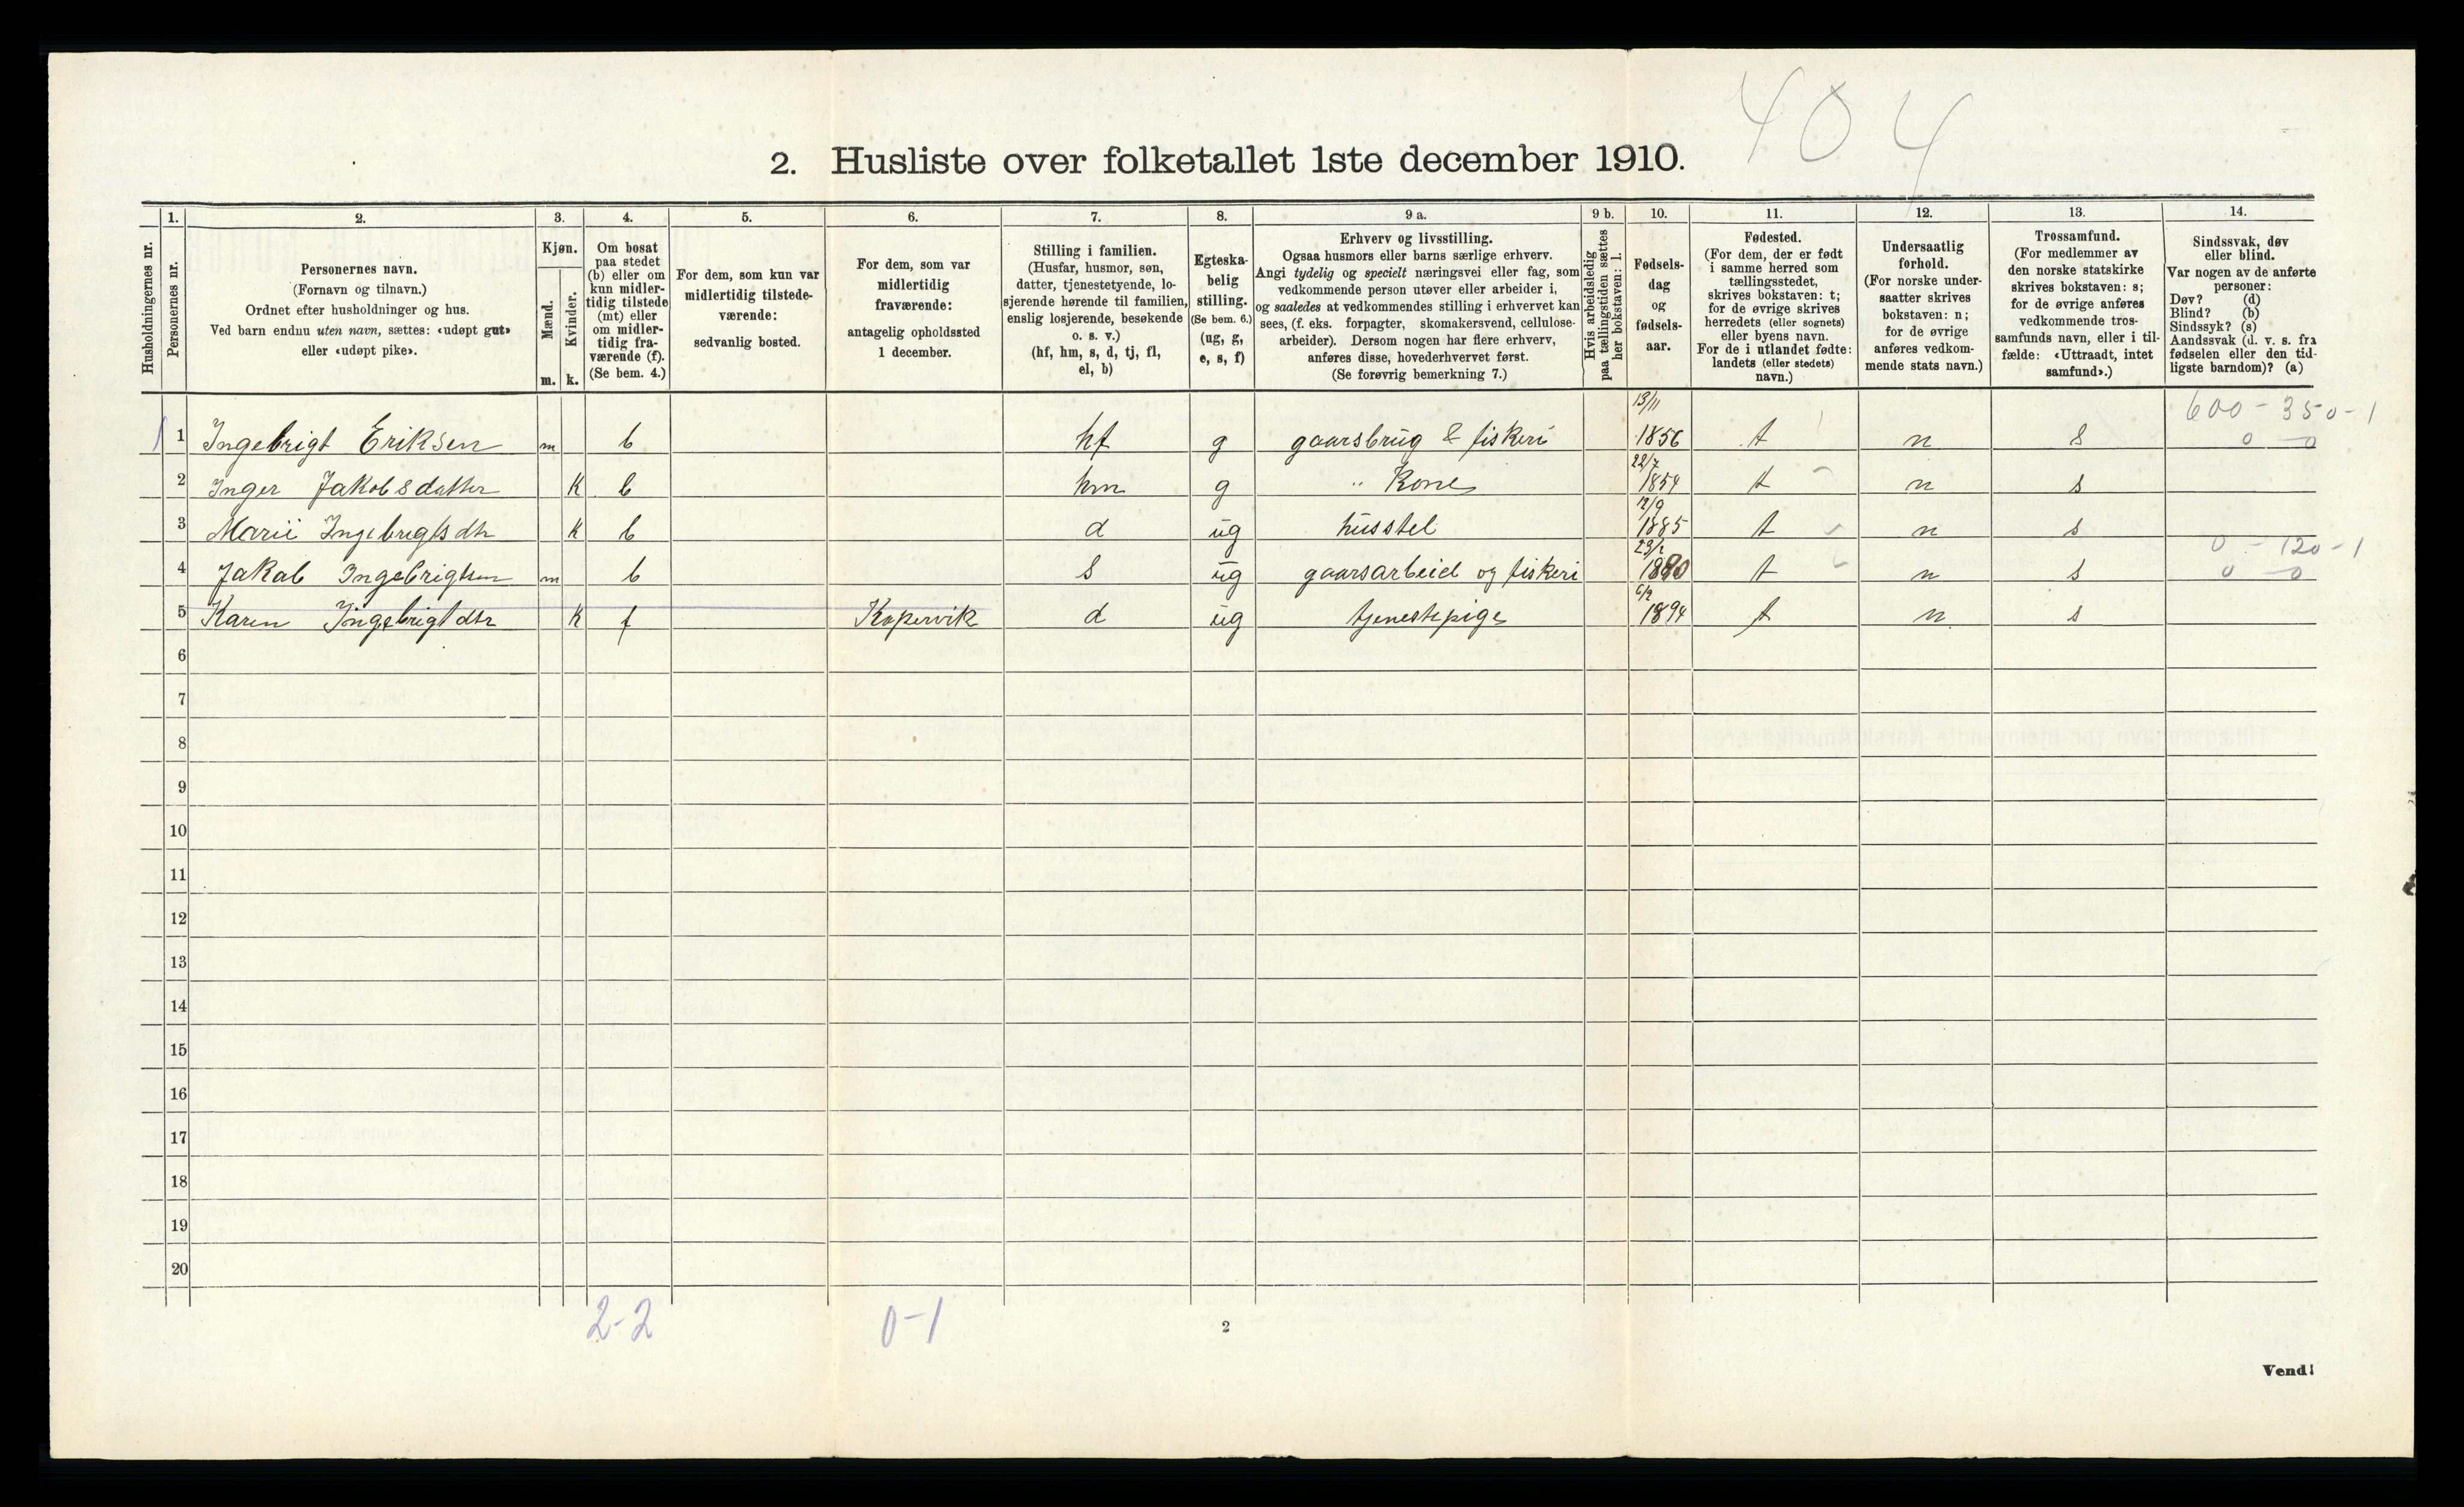 404
2. Husliste over folketallet 1ste december 1910.
Husholdningernes nr.
1. Personernes nr.
2. Personernes navn. (Fornavn og tilnavn.) Ordnet efter husholdninger og hus. Ved barn endnu uten navn, sættes: «udøpt gut» eller «udøpt pike».
3. Kjøn. Mænd. m. Kvinder. k.
4. Om bosat paa stedet (b) eller om kun midler-tidig tilstede (mt) eller om midler-tidig fra-værende (f). (Se bem. 4.)
5. For dem, som kun var midlertidig tilstede-værende: sedvanlig bosted.
6. For dem, som var midlertidig fraværende: antagelig opholdssted 1 december.
7. Stilling i familien. (Husfar, husmor, søn, datter, tjenestetyende, lo-sjerende hørende til familien, enslig losjerende, besøkende o. s. v.) (hf, hm, s, d, tj, fl, el, b)
8. Egteska-belig stilling. (Se bem. 6.) (ug, g, e, s, f)
9 a. Erhverv og livsstilling. Ogsaa husmors eller barns særlige erhverv. Angi tydelig og specielt næringsvei eller fag, som vedkommende person utøver eller arbeider i, og saaledes at vedkommendes stilling i erhvervet kan sees, (f. eks. forpagter, skomakersvend, cellulose-arbeider). Dersom nogen har flere erhverv, anføres disse, hovederhvervet først. (Se forøvrig bemerkning 7.)
9 b. Hvis arbeidsledig paa tællingstiden sættes her bokstaven: l.
10. Fødsels-dag og fødsels-aar.
11. Fødested. (For dem, der er født i samme herred som tællingsstedet, skrives bokstaven: t; for de øvrige skrives herredets (eller sognets) eller byens navn. For de i utlandet fødte: landets (eller stedets) navn.)
12. Undersaatlig forhold. (For norske under-saatter skrives bokstaven: n; for de øvrige anføres vedkom-mende stats navn.)
13. Trossamfund. (For medlemmer av den norske statskirke skrives bokstaven: s; for de øvrige anføres vedkommende tros-samfunds navn, eller i til-fælde: «Uttraadt, intet samfund».)
14. Sindssvak, døv eller blind. Var nogen av de anførte personer: Døv? (d) Blind? (b) Sindssyk? (s) Aandssvak (d. v. s. fra fødselen eller den tid-ligste barndom)? (a)
13/11 600 - 350 - 1
1 1 Ingebrigt Eriksen m b hf g gaarsbrug & fiskeri 1856 t n S 0 - 0
2 Inger Jakobsdatter K b hm g " Kone 22/7 1854 t n s
3 Marii Ingebrigtsdtr K b d ug husstel 12/9 1885 t n s
0 - 120 - 1
4 Jakob Ingebrigtsen m b s ug gaarsarbeid og fiskeri 1890 t n s 0 - 0
5 Karen Ingebrigtdtr K f Kopervik d ug tjenestepige 6/2 1894 t n s
6
7
8
9
10
11
12
13
14
15
16
17
18
19
20
2-2 0-1
2
Vend!